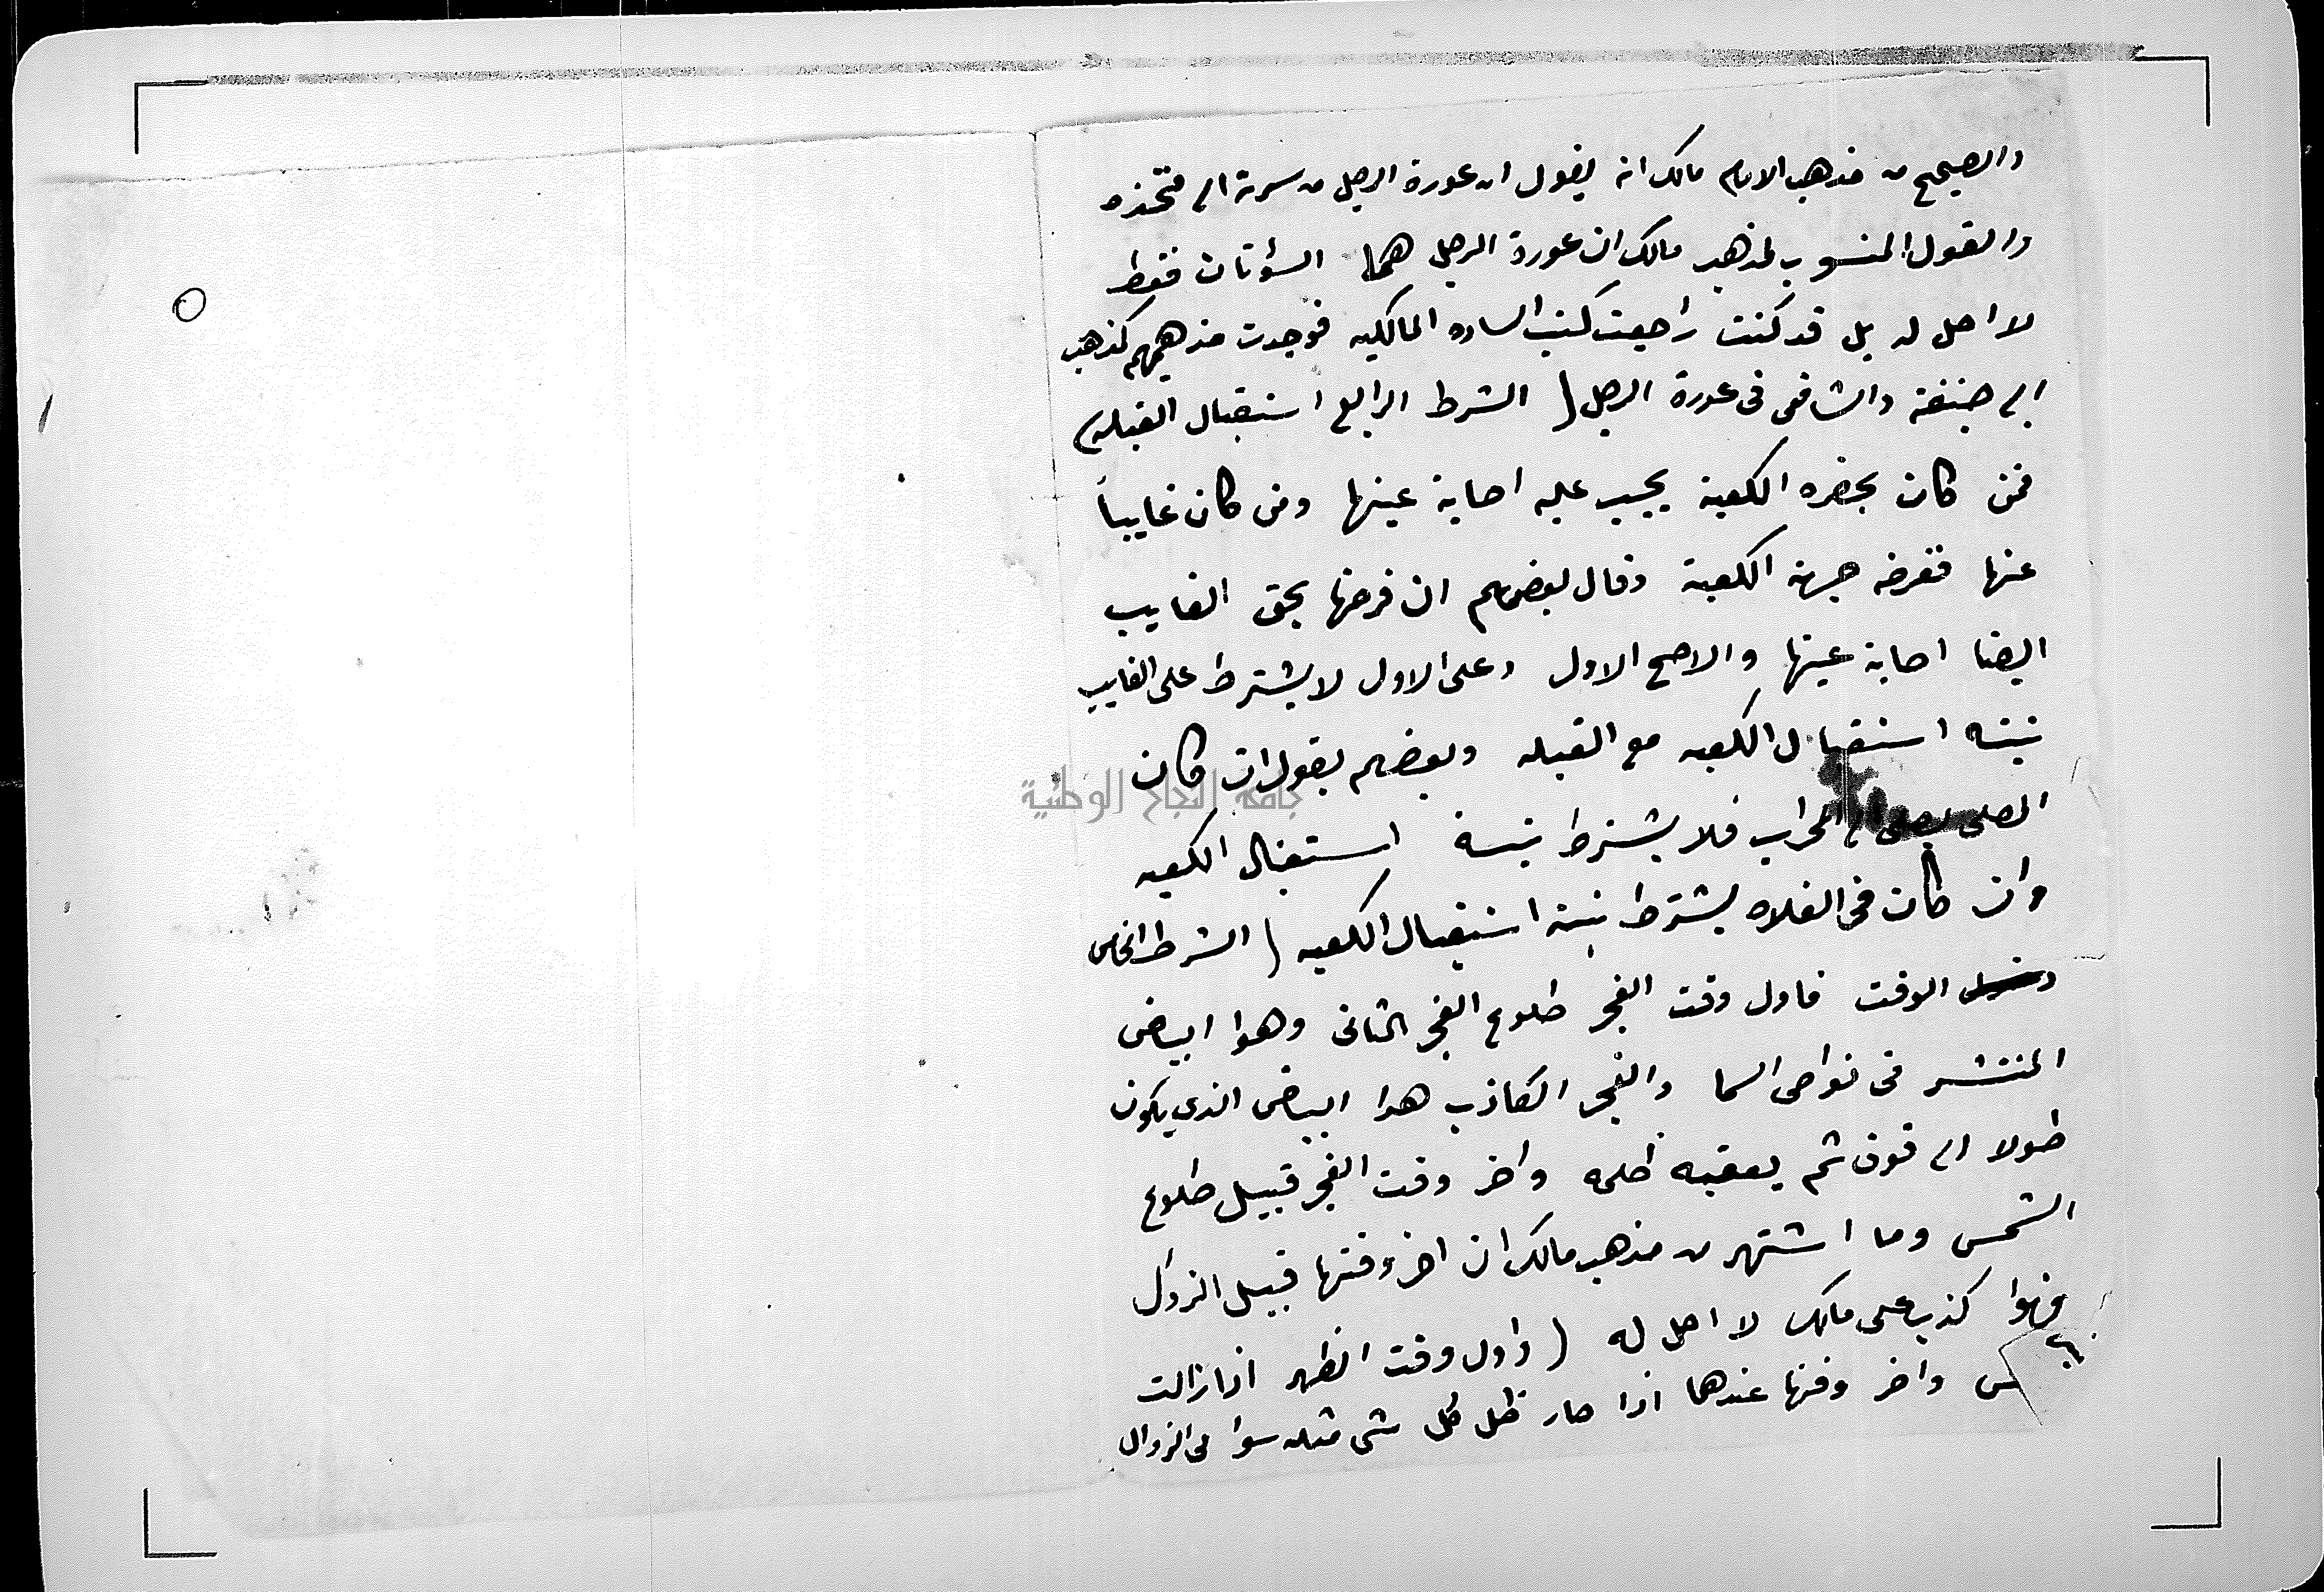 والصحيح من مذهب الامام مالك انه يقول ان عورة الرجل من سرته الى فخذه
والقول المنسوب لمذهب مالك ان عورة الرجل هما السؤتان فقط
لا اصل له بل قد كنت راجعت كتب الساده المالكيه فوجدت مذهبهم كمذهب
ابى حنيفة والشافعى فى عورة الرجل ( الشرط الرابع استقبال القبله )
فمن كان بحضره الكعبة يجب عليه اصابة عينها ومن كان غايباً
عنها ففرضه جهة الكعبة وقال بعضهم ان فرضها بحق الغايب
ايضا اصابة عينها والاصح الاول وعلى الاول لا يشترط على الغايب
نيته استقبال الكعبه مع القبله وبعضهم يقول ان كان
المصلى يصلى الى المحراب فلا يشترط نيسة استقبال الكعبه
وان كان فى الفلاه يشترط نيته استقبال الكعبه ( الشرط الخامس
دخول الوقت فاول وقت الفجر طلوع الفجر الثانى وهوا البياض
المنتشر فى نواحى السما والفجر الكاذب هوا البياض الذى يكون
طولا الى فوق ثم يعقبه ظلمه واخر وقت الفجر قبيل طلوع
الشمس وما اشتهر من مذهب مالك ان اخر وقتها قبيل الزوال
فهوا كذب على مالك لا اصل له ( واول وقت الظهر اذا زالت
س واخر وقتها عندهما اذا صار ظل كل شى مثله سوا فى الزوال
جامعة النجاح الوطنية